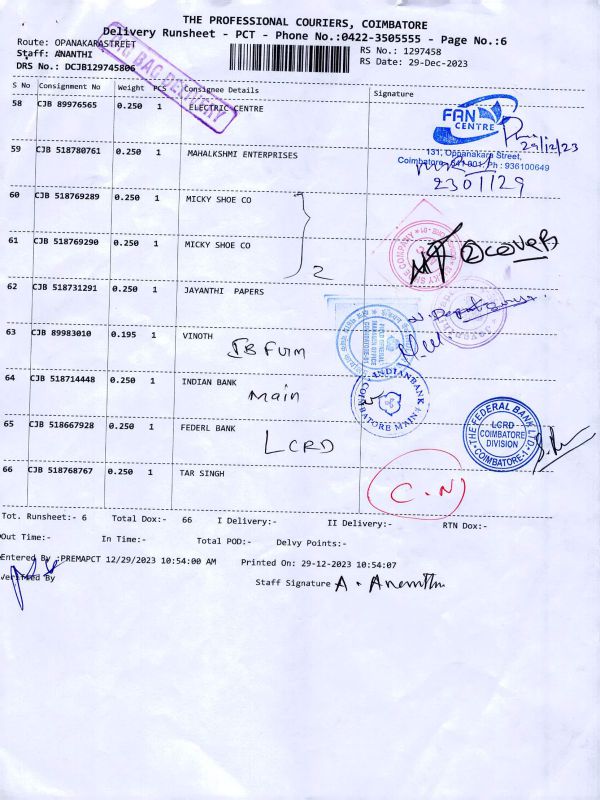 THE PROFESSIONAL COURIERS, COIMBATORE
Delivery Runsheet - PCT - Phone No.:0422-3505555 - Page No.:6
Route: OPANAKARASTREET
RS No.: 1297458
Staff: ANANTHI
RS Date: 29-Dec-2023
DRS No.: DCJB129745806
BAG DELIVERY
S No Consignment No Weight PCS Consignee Details Signature
58 CJB 89976565 0.250 1 ELECTRIC CENTRE
FAN
CENTRE
29/12/23
131, Oppanakara Street,
Coimbatore - 641 001. Ph : 936100649
59 CJB 518780761 0.250 1 MAHALKSHMI ENTERPRISES
2301129
60 CJB 518769289 0.250 1 MICKY SHOE CO
61 CJB 518769290 0.250 1 MICKY SHOE CO
2
2 cover
62 CJB 518731291 0.250 1 JAYANTHI PAPERS
63 CJB 89983010 0.195 1 VINOTH
64 CJB 518714448 0.250 1 INDIAN BANK
main
INDIAN BANK
COIMBATORE MAIN
65 CJB 518667928 0.250 1 FEDERL BANK
LCRD
THE FEDERAL BANK LTD.
LCRD
COIMBATORE
DIVISION
COIMBATORE-1
66 CJB 518768767 0.250 1 TAR SINGH
C.N
Tot. Runsheet:- 6 Total Dox:- 66 I Delivery:- II Delivery:- RTN Dox:-
Out Time:- In Time:- Total POD:- Delvy Points:-
Entered By :PREMAPCT 12/29/2023 10:54:00 AM Printed On: 29-12-2023 10:54:07
Verified By
Staff Signature A. Ananthi